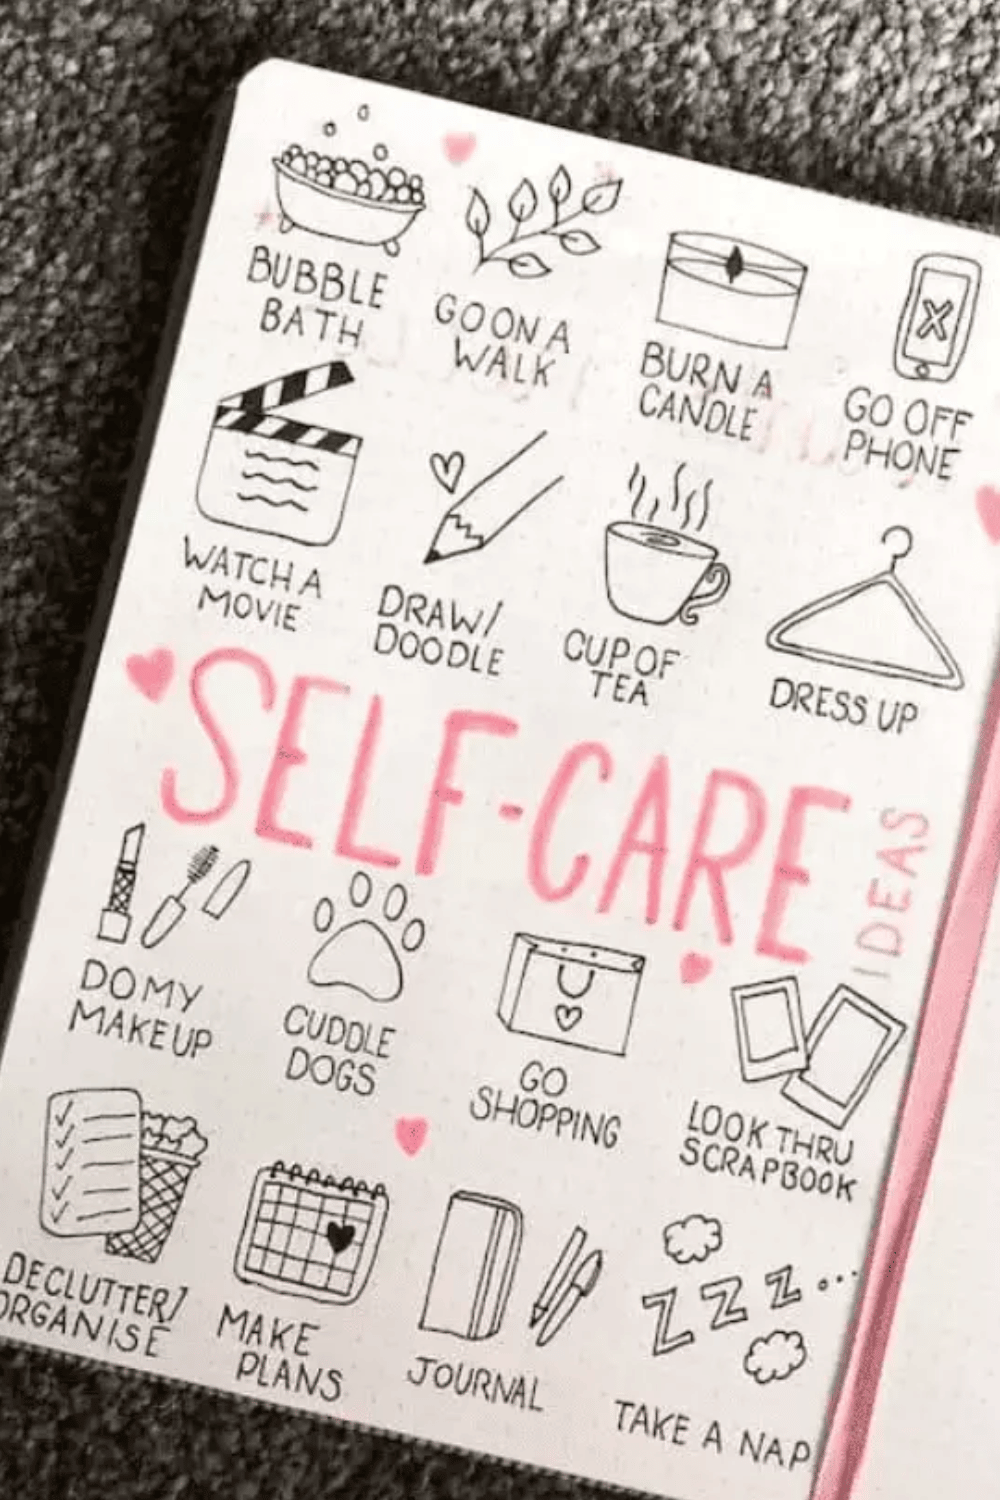 BUBBLE
BATH
GO ON A
WALK
BURN A
CANDLE
GO OFF
PHONE
WATCH A
MOVIE
DRAW/
DOODLE
CUP OF
TEA
DRESS UP
SELF-CARE
IDEAS
DO MY
MAKEUP
CUDDLE
DOGS
GO
SHOPPING
LOOK THRU
SCRAPBOOK
DECLUTTER/
ORGANISE
MAKE
PLANS
JOURNAL
ZZZ...
TAKE A NAP